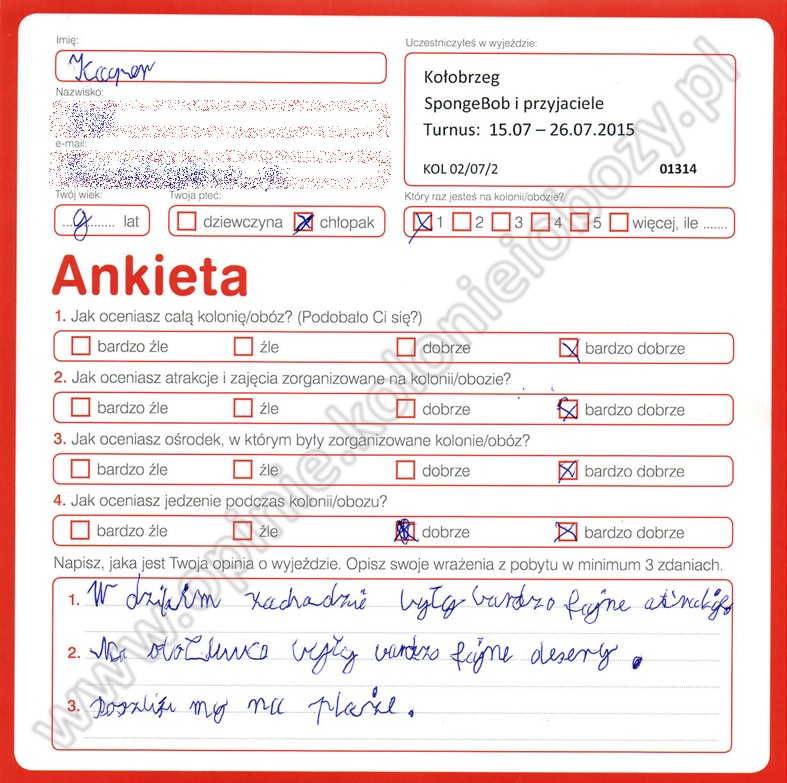 Imię:
Kacper
Uczestniczyłeś w wyjeździe:
Kołobrzeg
SpongeBob i przyjaciele
Turnus: 15.07 – 26.07.2015
KOL 02/07/2 01314
Nazwisko:
e-mail:
Twój wiek:
9 lat
Twoja płeć:
dziewczyna chłopak
Który raz jesteś na kolonii/obozie?
1 2 3 4 5 więcej, ile .......
Ankieta
1. Jak oceniasz całą kolonię/obóz? (Podobało Ci się?)
bardzo źle źle dobrze bardzo dobrze
2. Jak oceniasz atrakcje i zajęcia zorganizowane na kolonii/obozie?
bardzo źle źle dobrze bardzo dobrze
3. Jak oceniasz ośrodek, w którym były zorganizowane kolonie/obóz?
bardzo źle źle dobrze bardzo dobrze
4. Jak oceniasz jedzenie podczas kolonii/obozu?
bardzo źle źle dobrze bardzo dobrze
Napisz, jaka jest Twoja opinia o wyjeździe. Opisz swoje wrażenia z pobytu w minimum 3 zdaniach.
1. W dzikim zachodzie były bardzo fajne
2. Na stołówce były bardzo fajne desery.
3. my na plaże.
www.opinie.kolonieiobozy.pl